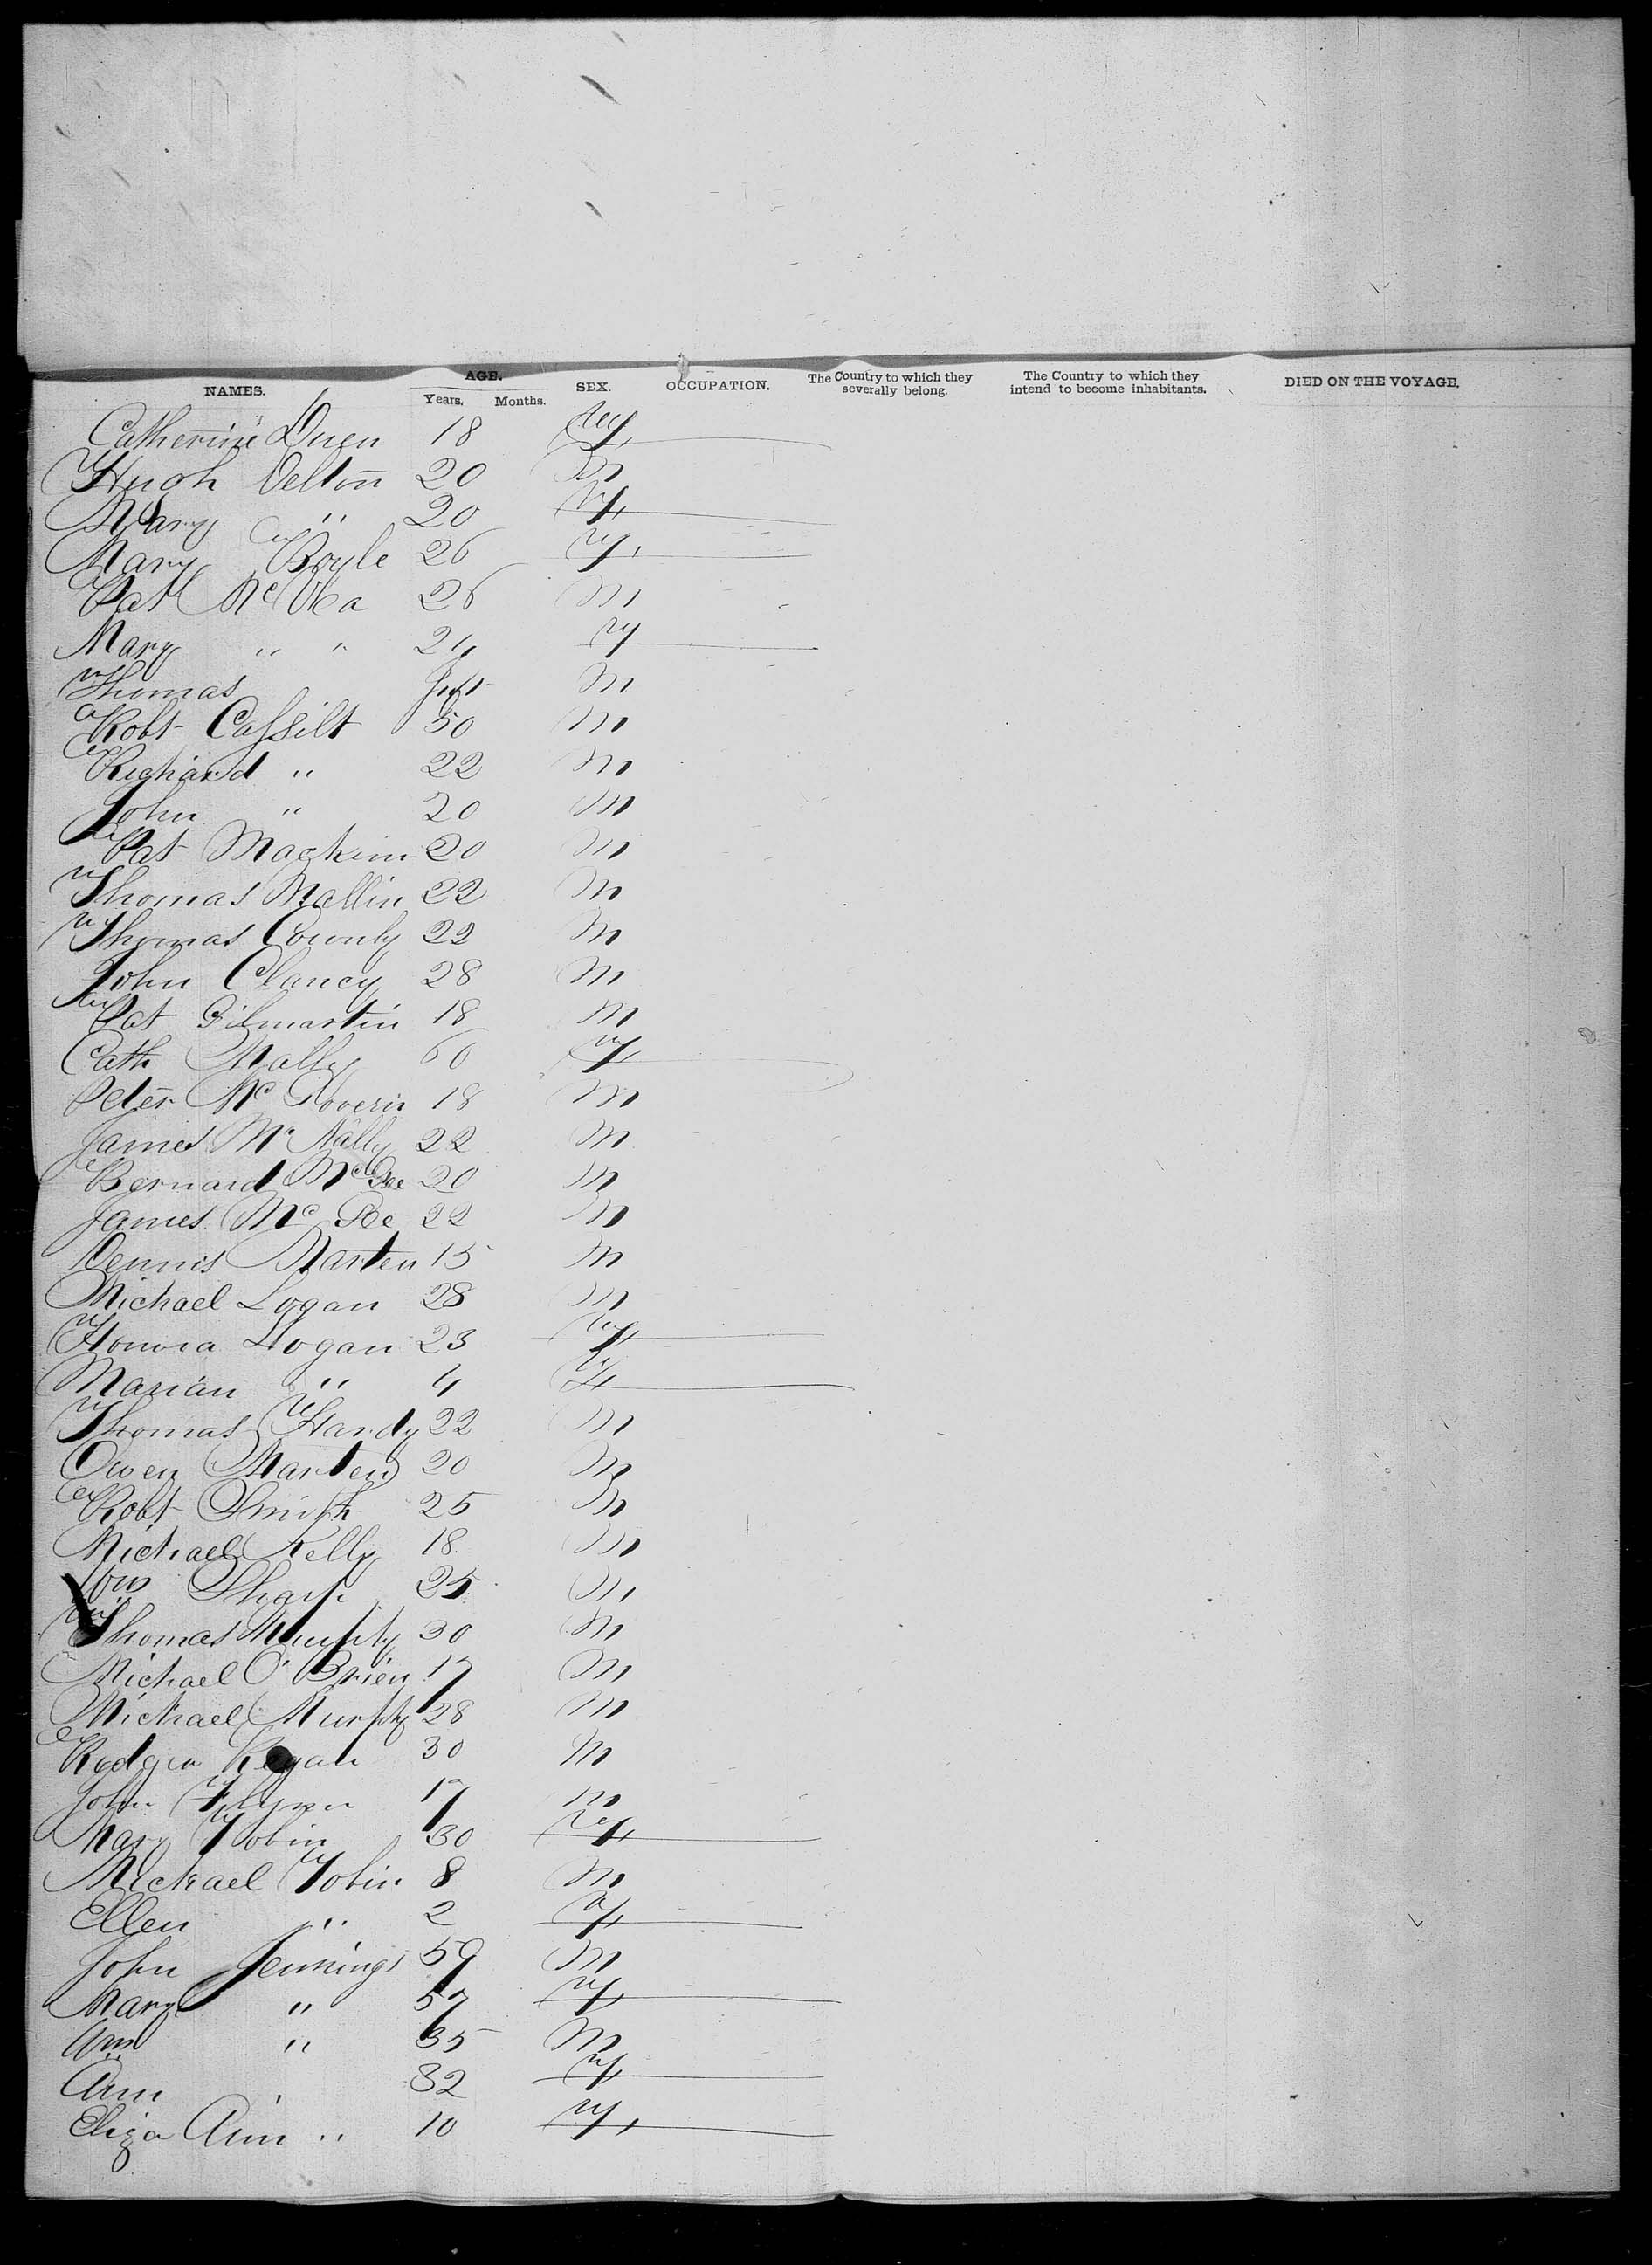 NAMES. AGE. Years. Months. SEX. OCCUPATION. The Country to which they severally belong. The Country to which they intend to become inhabitants. DIED ON THE VOYAGE.
Catherine Duen 18 F
Hugh Delton 20 M
Mary " 20 F
Mary Boyle 26 F
Pat Mc 26 M
Mary " " 24 F
Thomas Inft M
Robt Cassilt 50 M
Richard " 22 M
John " 20 M
Pat Mackim 20 M
Thomas Mallin 22 M
Thomas County 22 M
John Clancy 28 M
Pat Gilmartin 18 M
Cath Mally 60 F
Peter Mc Govern 18 M
James Mc Nally 22 M
Bernard Mc Gee 20 M
James Mc 22 M
Dennis Marten 15 M
Michael Logan 28 M
Honora Logan 23 F
Marian " 4 F
Thomas Hardy 22 M
Owen Marten 20 M
Robt Smith 25 M
Michael Kelly 18 M
Wm Sharp 25 M
Thomas Murphy 30 M
Michael O'Brien 17 M
Michael Murphy 28 M
Rodger Regan 30 M
John Flynn 17 M
Mary Tobin 30 F
Michael Tobin 8 M
Ellen " 2 F
John Jennings 59 M
Mary " 57 F
Wm " 35 M
Ann 32 F
Eliza Ann " 10 F